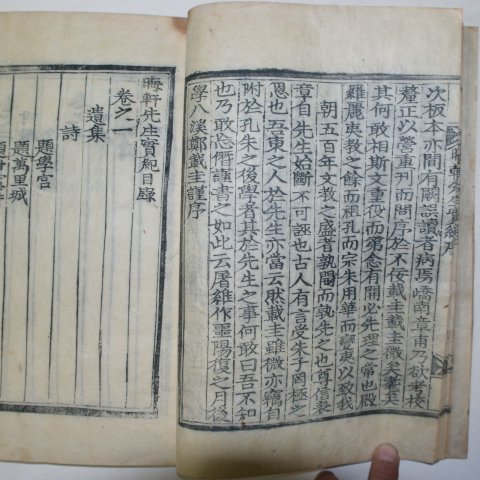 次板本亦間有闕誤讀者病焉嶠南章甫乃欲考校
釐正以營重刊而問序於不佞載圭載圭微矣耄矣
其何敢相斯文重役而第念有開必先理之常也殿
羅麗夷敎之餘而祖孔而宗朱用華而變東以致我
朝五百年文敎之盛者孰闢而孰先之也尊信表
章自先生始斷不可誣也古人有言受朱子罔極之
恩也吾東之人於先生亦當云然載圭雖微亦竊自
附於孔朱之後學者其於先生之事何敢曰吾不知
也乃敢忘僭謹書之如此云屠維作噩陽復之月後
學八溪鄭載圭謹序
晦軒先生實紀目錄
卷之一
遺集
詩
題學宮
題萬里城